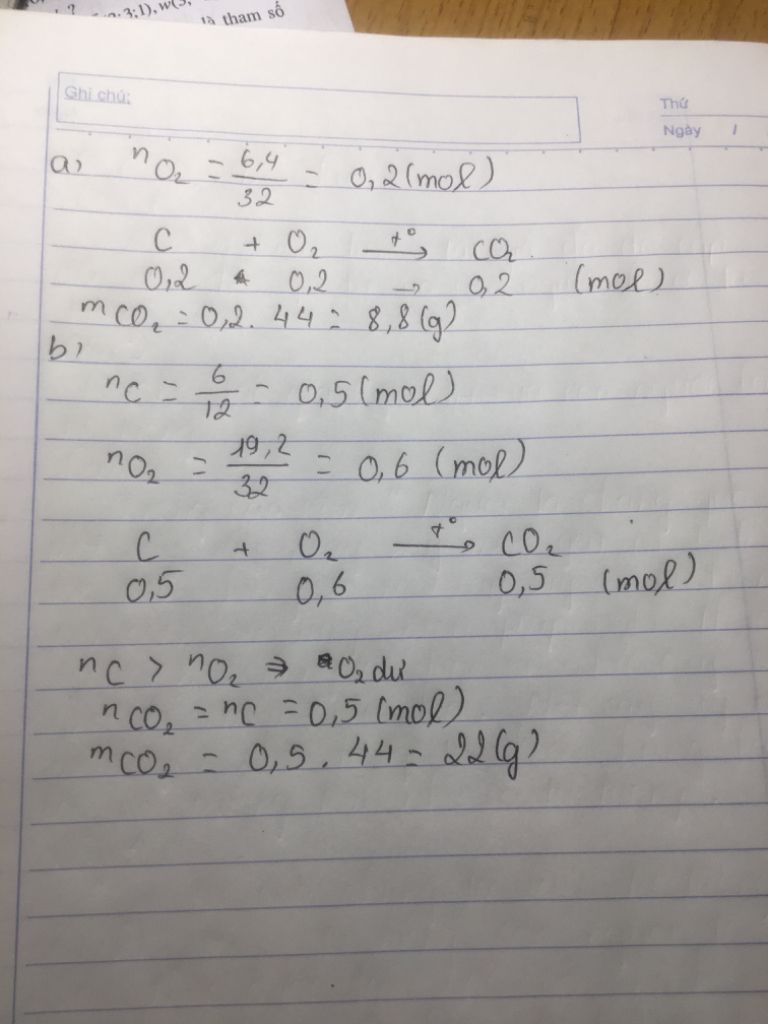 là tham số
Ghi chú:
Thứ
Ngày /
a) nO₂ = 6,4/32 = 0,2 (mol)
C + O₂ —t°→ CO₂
0,2 ← 0,2 → 0,2 (mol)
mCO₂ = 0,2 . 44 = 8,8 (g)
b)
nC = 6/12 = 0,5 (mol)
nO₂ = 19,2/32 = 0,6 (mol)
C + O₂ —t°→ CO₂
0,5 0,6 0,5 (mol)
nC > nO₂ ⇒ O₂ dư
nCO₂ = nC = 0,5 (mol)
mCO₂ = 0,5 . 44 = 22 (g)